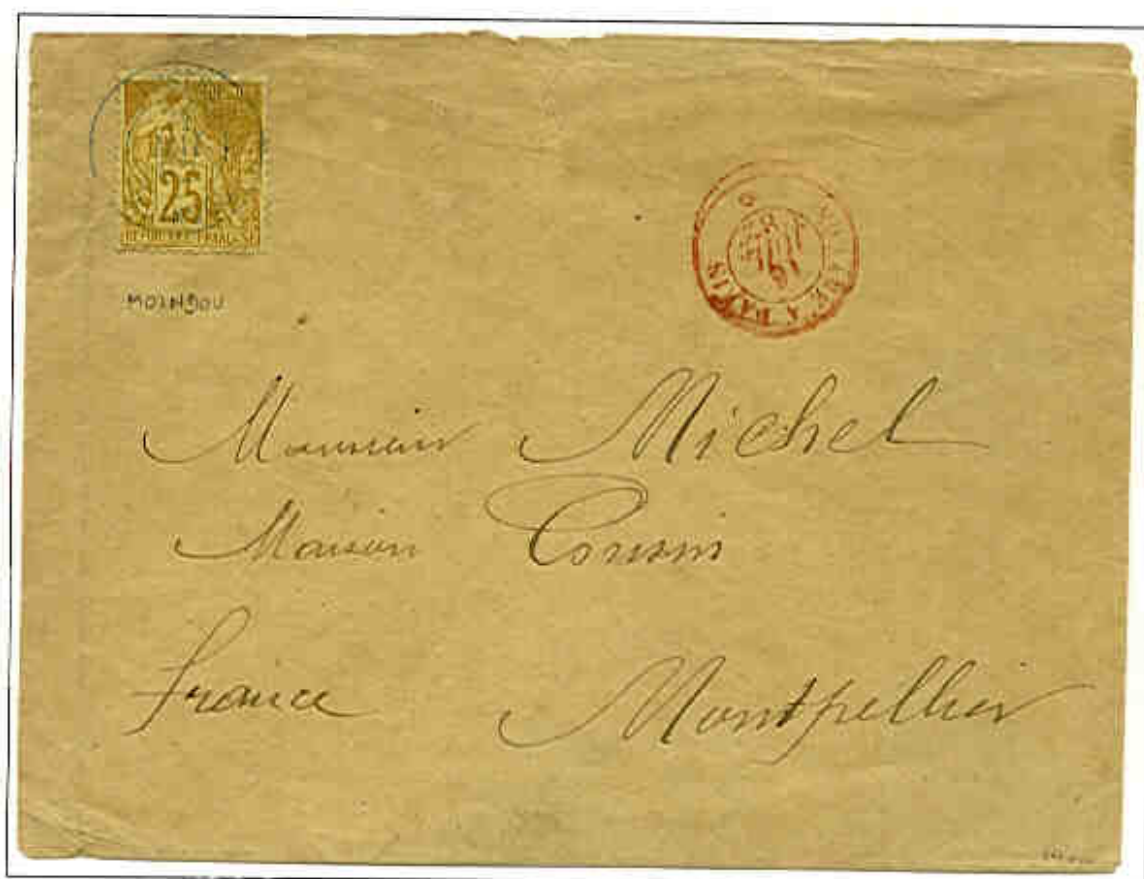 25
REPUBLIQUE FRANÇAISE
MOINDOU
A PARIS
Monsieur Michel
Maison Cousin
France Montpellier